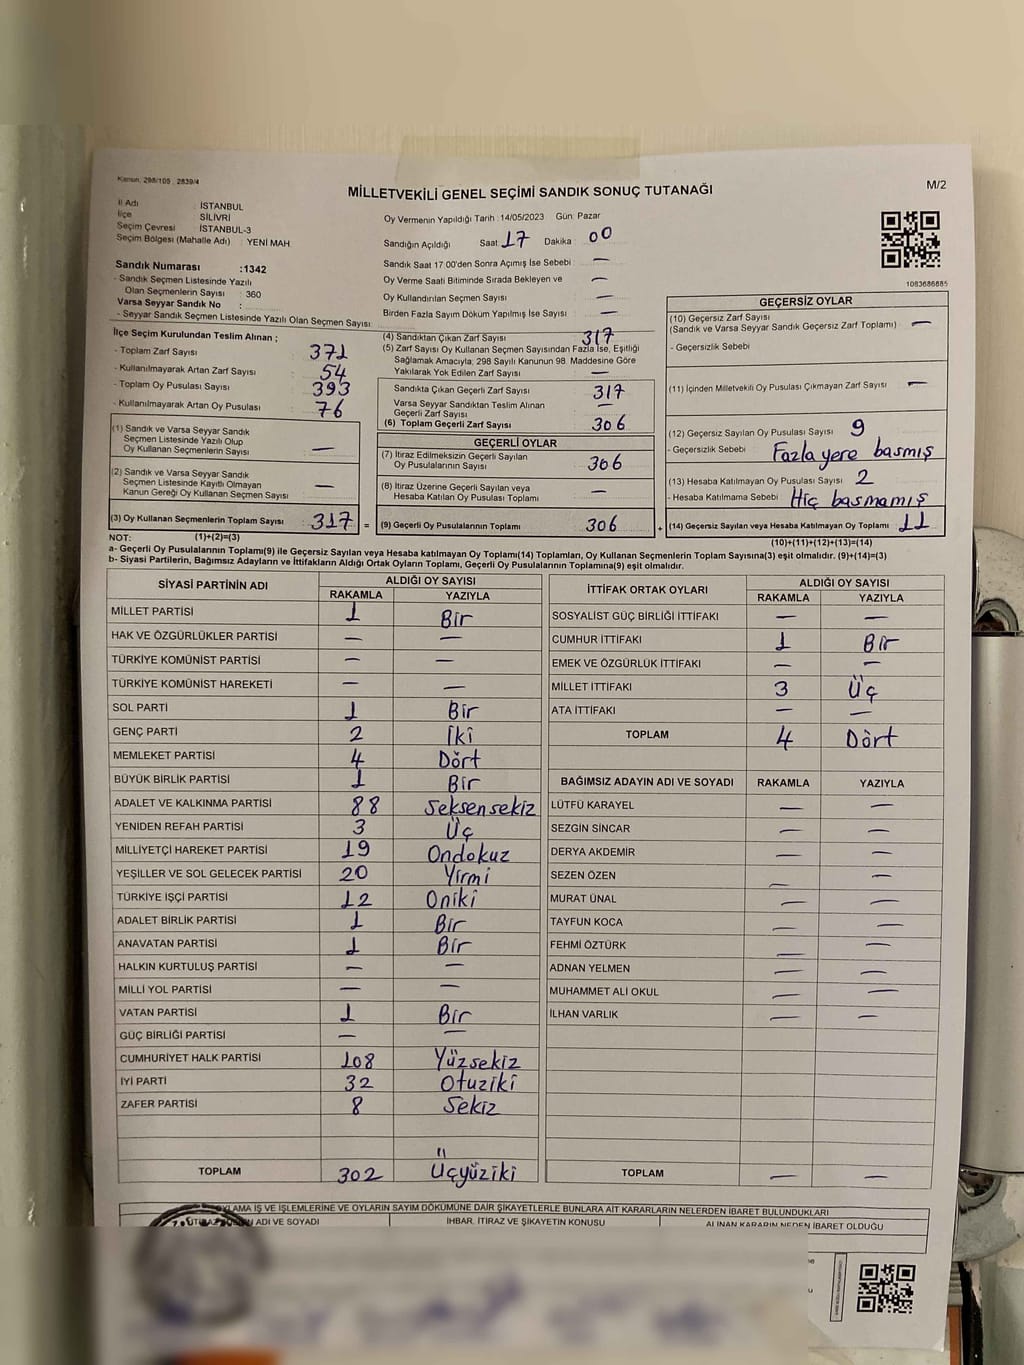 Kanun, 298/105 , 2839/4
MİLLETVEKİLİ GENEL SEÇİMİ SANDIK SONUÇ TUTANAĞI
M/2
İl Adı : İSTANBUL
İlçe : SİLİVRİ
Seçim Çevresi : İSTANBUL-3
Seçim Bölgesi (Mahalle Adı) : YENİ MAH.
Oy Vermenin Yapıldığı Tarih : 14/05/2023 Gün: Pazar
Sandığın Açıldığı Saat : 17 Dakika : 00
Sandık Saat 17:00'den Sonra Açımış İse Sebebi : —
Oy Verme Saati Bitiminde Sırada Bekleyen ve : —
Oy Kullandırılan Seçmen Sayısı : —
Birden Fazla Sayım Döküm Yapılmış İse Sayısı : —
1083686885
Sandık Numarası :1342
- Sandık Seçmen Listesinde Yazılı
Olan Seçmenlerin Sayısı : 360
Varsa Seyyar Sandık No :
- Seyyar Sandık Seçmen Listesinde Yazılı Olan Seçmen Sayısı:
İlçe Seçim Kurulundan Teslim Alınan ;
- Toplam Zarf Sayısı : 371
- Kullanılmayarak Artan Zarf Sayısı : 54
- Toplam Oy Pusulası Sayısı : 393
- Kullanılmayarak Artan Oy Pusulası : 76
(1) Sandık ve Varsa Seyyar Sandık
Seçmen Listesinde Yazılı Olup
Oy Kullanan Seçmenlerin Sayısı : —
(2) Sandık ve Varsa Seyyar Sandık
Seçmen Listesinde Kayıtlı Olmayan
Kanun Gereği Oy Kullanan Seçmen Sayısı : —
(3) Oy Kullanan Seçmenlerin Toplam Sayısı : 317 =
(1)+(2)=(3)
(4) Sandıktan Çıkan Zarf Sayısı : 317
(5) Zarf Sayısı Oy Kullanan Seçmen Sayısından Fazla İse, Eşitliği
Sağlamak Amacıyla; 298 Sayılı Kanunun 98. Maddesine Göre
Yakılarak Yok Edilen Zarf Sayısı : —
Sandıkta Çıkan Geçerli Zarf Sayısı : 317
Varsa Seyyar Sandıktan Teslim Alınan
Geçerli Zarf Sayısı : —
(6) Toplam Geçerli Zarf Sayısı : 306
GEÇERLİ OYLAR
(7) İtiraz Edilmeksizin Geçerli Sayılan
Oy Pusulalarının Sayısı : 306
(8) İtiraz Üzerine Geçerli Sayılan veya
Hesaba Katılan Oy Pusulası Toplamı : —
(9) Geçerli Oy Pusulalarının Toplamı : 306 +
GEÇERSİZ OYLAR
(10) Geçersiz Zarf Sayısı
(Sandık ve Varsa Seyyar Sandık Geçersiz Zarf Toplamı) : —
- Geçersizlik Sebebi :
(11) İçinden Milletvekili Oy Pusulası Çıkmayan Zarf Sayısı : —
(12) Geçersiz Sayılan Oy Pusulası Sayısı : 9
- Geçersizlik Sebebi : Fazla yere basmış
(13) Hesaba Katılmayan Oy Pusulası Sayısı : 2
- Hesaba Katılmama Sebebi : Hiç basmamış
(14) Geçersiz Sayılan veya Hesaba Katılmayan Oy Toplamı : 11
(10)+(11)+(12)+(13)=(14)
NOT:
a- Geçerli Oy Pusulalarının Toplamı(9) ile Geçersiz Sayılan veya Hesaba katılmayan Oy Toplamı(14) Toplamları, Oy Kullanan Seçmenlerin Toplam Sayısına(3) eşit olmalıdır. (9)+(14)=(3)
b- Siyasi Partilerin, Bağımsız Adayların ve İttifakların Aldığı Ortak Oyların Toplamı, Geçerli Oy Pusulalarının Toplamına(9) eşit olmalıdır.
SİYASİ PARTİNİN ADI ALDIĞI OY SAYISI
RAKAMLA YAZIYLA
MİLLET PARTİSİ 1 Bir
HAK VE ÖZGÜRLÜKLER PARTİSİ — —
TÜRKİYE KOMÜNİST PARTİSİ — —
TÜRKİYE KOMÜNİST HAREKETİ — —
SOL PARTİ 1 Bir
GENÇ PARTİ 2 İki
MEMLEKET PARTİSİ 4 Dört
BÜYÜK BİRLİK PARTİSİ 1 Bir
ADALET VE KALKINMA PARTİSİ 88 Seksensekiz
YENİDEN REFAH PARTİSİ 3 Üç
MİLLİYETÇİ HAREKET PARTİSİ 19 Ondokuz
YEŞİLLER VE SOL GELECEK PARTİSİ 20 Yirmi
TÜRKİYE İŞÇİ PARTİSİ 12 Oniki
ADALET BİRLİK PARTİSİ 1 Bir
ANAVATAN PARTİSİ 1 Bir
HALKIN KURTULUŞ PARTİSİ — —
MİLLİ YOL PARTİSİ — —
VATAN PARTİSİ 1 Bir
GÜÇ BİRLİĞİ PARTİSİ — —
CUMHURİYET HALK PARTİSİ 108 Yüzsekiz
İYİ PARTİ 32 Otuziki
ZAFER PARTİSİ 8 Sekiz
TOPLAM 302 Üçyüziki
İTTİFAK ORTAK OYLARI ALDIĞI OY SAYISI
RAKAMLA YAZIYLA
SOSYALİST GÜÇ BİRLİĞİ İTTİFAKI — —
CUMHUR İTTİFAKI 1 Bir
EMEK VE ÖZGÜRLÜK İTTİFAKI — —
MİLLET İTTİFAKI 3 Üç
ATA İTTİFAKI — —
TOPLAM 4 Dört
BAĞIMSIZ ADAYIN ADI VE SOYADI RAKAMLA YAZIYLA
LÜTFÜ KARAYEL — —
SEZGİN SİNCAR — —
DERYA AKDEMİR — —
SEZEN ÖZEN — —
MURAT ÜNAL — —
TAYFUN KOCA — —
FEHMİ ÖZTÜRK — —
ADNAN YELMEN — —
MUHAMMET ALİ OKUL — —
İLHAN VARLIK — —
TOPLAM — —
OYLAMA İŞ VE İŞLEMLERİNE VE OYLARIN SAYIM DÖKÜMÜNE DAİR ŞİKAYETLERLE BUNLARA AİT KARARLARIN NELERDEN İBARET BULUNDUKLARI
ADI VE SOYADI İHBAR, İTİRAZ VE ŞİKAYETİN KONUSU ALINAN KARARIN NEDEN İBARET OLDUĞU